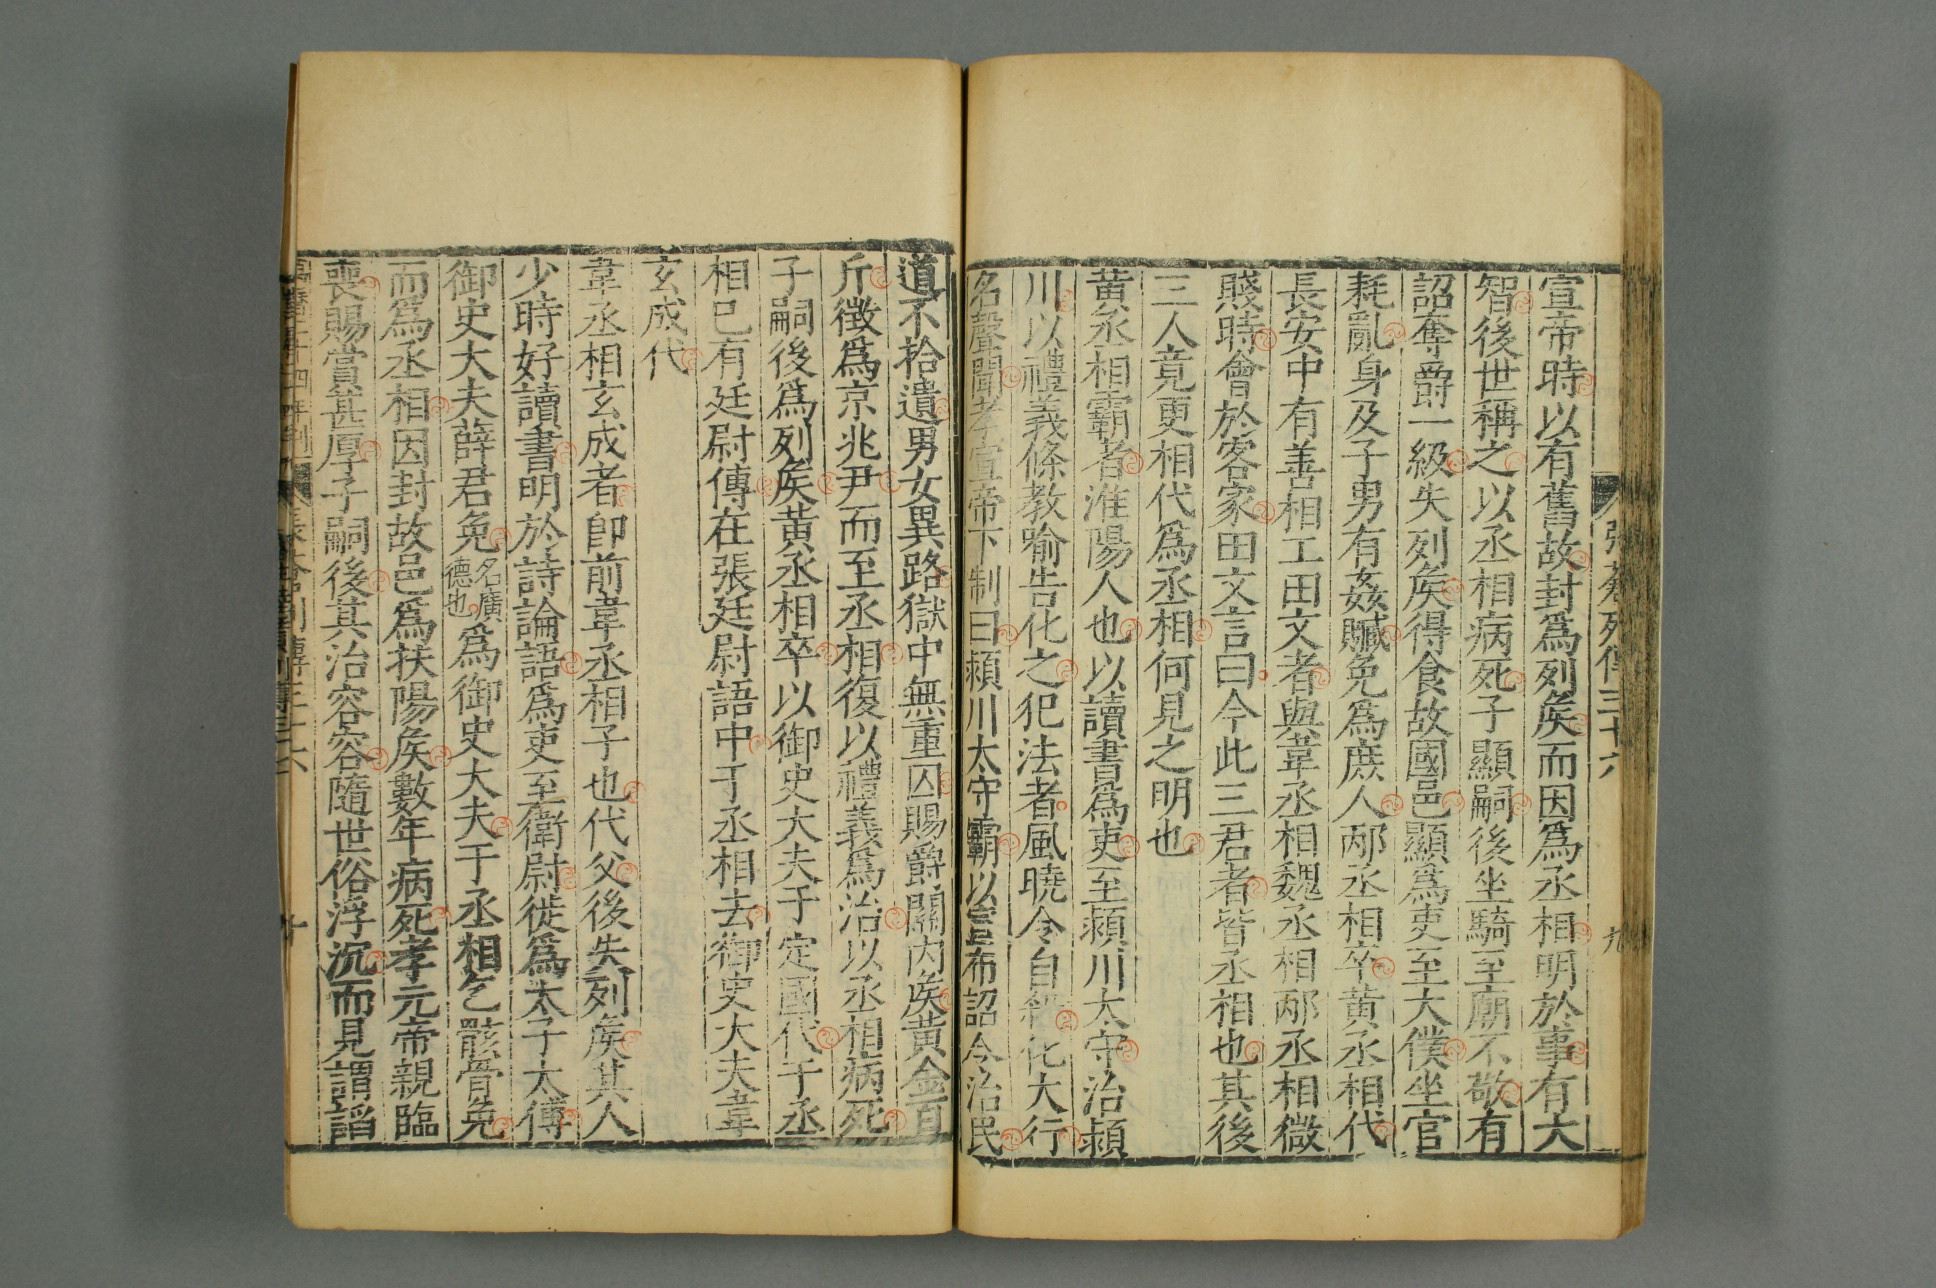 張蒼列傳三十六
九
宣帝時以有舊故封爲列矦而因爲丞相明於事有大
智後世稱之以丞相病死子顯嗣後坐騎至廟不敬有
詔奪爵一級失列矦得食故國邑顯爲吏至大僕坐官
耗亂身及子男有姦贓免爲庻人邴丞相卒黃丞相代
長安中有善相工田文者與韋丞相魏丞相邴丞相微
賤時會於客家田文言曰今此三君者皆丞相也其後
三人竟更相代爲丞相何見之明也
黃丞相霸者淮陽人也以讀書爲吏至潁川太守治潁
川以禮義條教喻告化之犯法者風曉令自殺化大行
名聲聞孝宣帝下制曰潁川太守霸以宣布詔令治民
道不拾遺男女異路獄中無重囚賜爵關內矦黃金百
斤徵爲京兆尹而至丞相復以禮義爲治以丞相病死
子嗣後爲列矦黃丞相卒以御史大夫于定國代于丞
相已有廷尉傳在張廷尉語中于丞相去御史大夫韋
玄成代
韋丞相玄成者卽前韋丞相子也代父後失列矦其人
少時好讀書明於詩論語爲吏至衛尉徙爲太子太傅
御史大夫薛君免名廣德也爲御史大夫于丞相乞骸骨免
而爲丞相因封故邑爲扶陽矦數年病死孝元帝親臨
喪賜賞甚厚子嗣後其治容容隨世俗浮沉而見謂諂
十